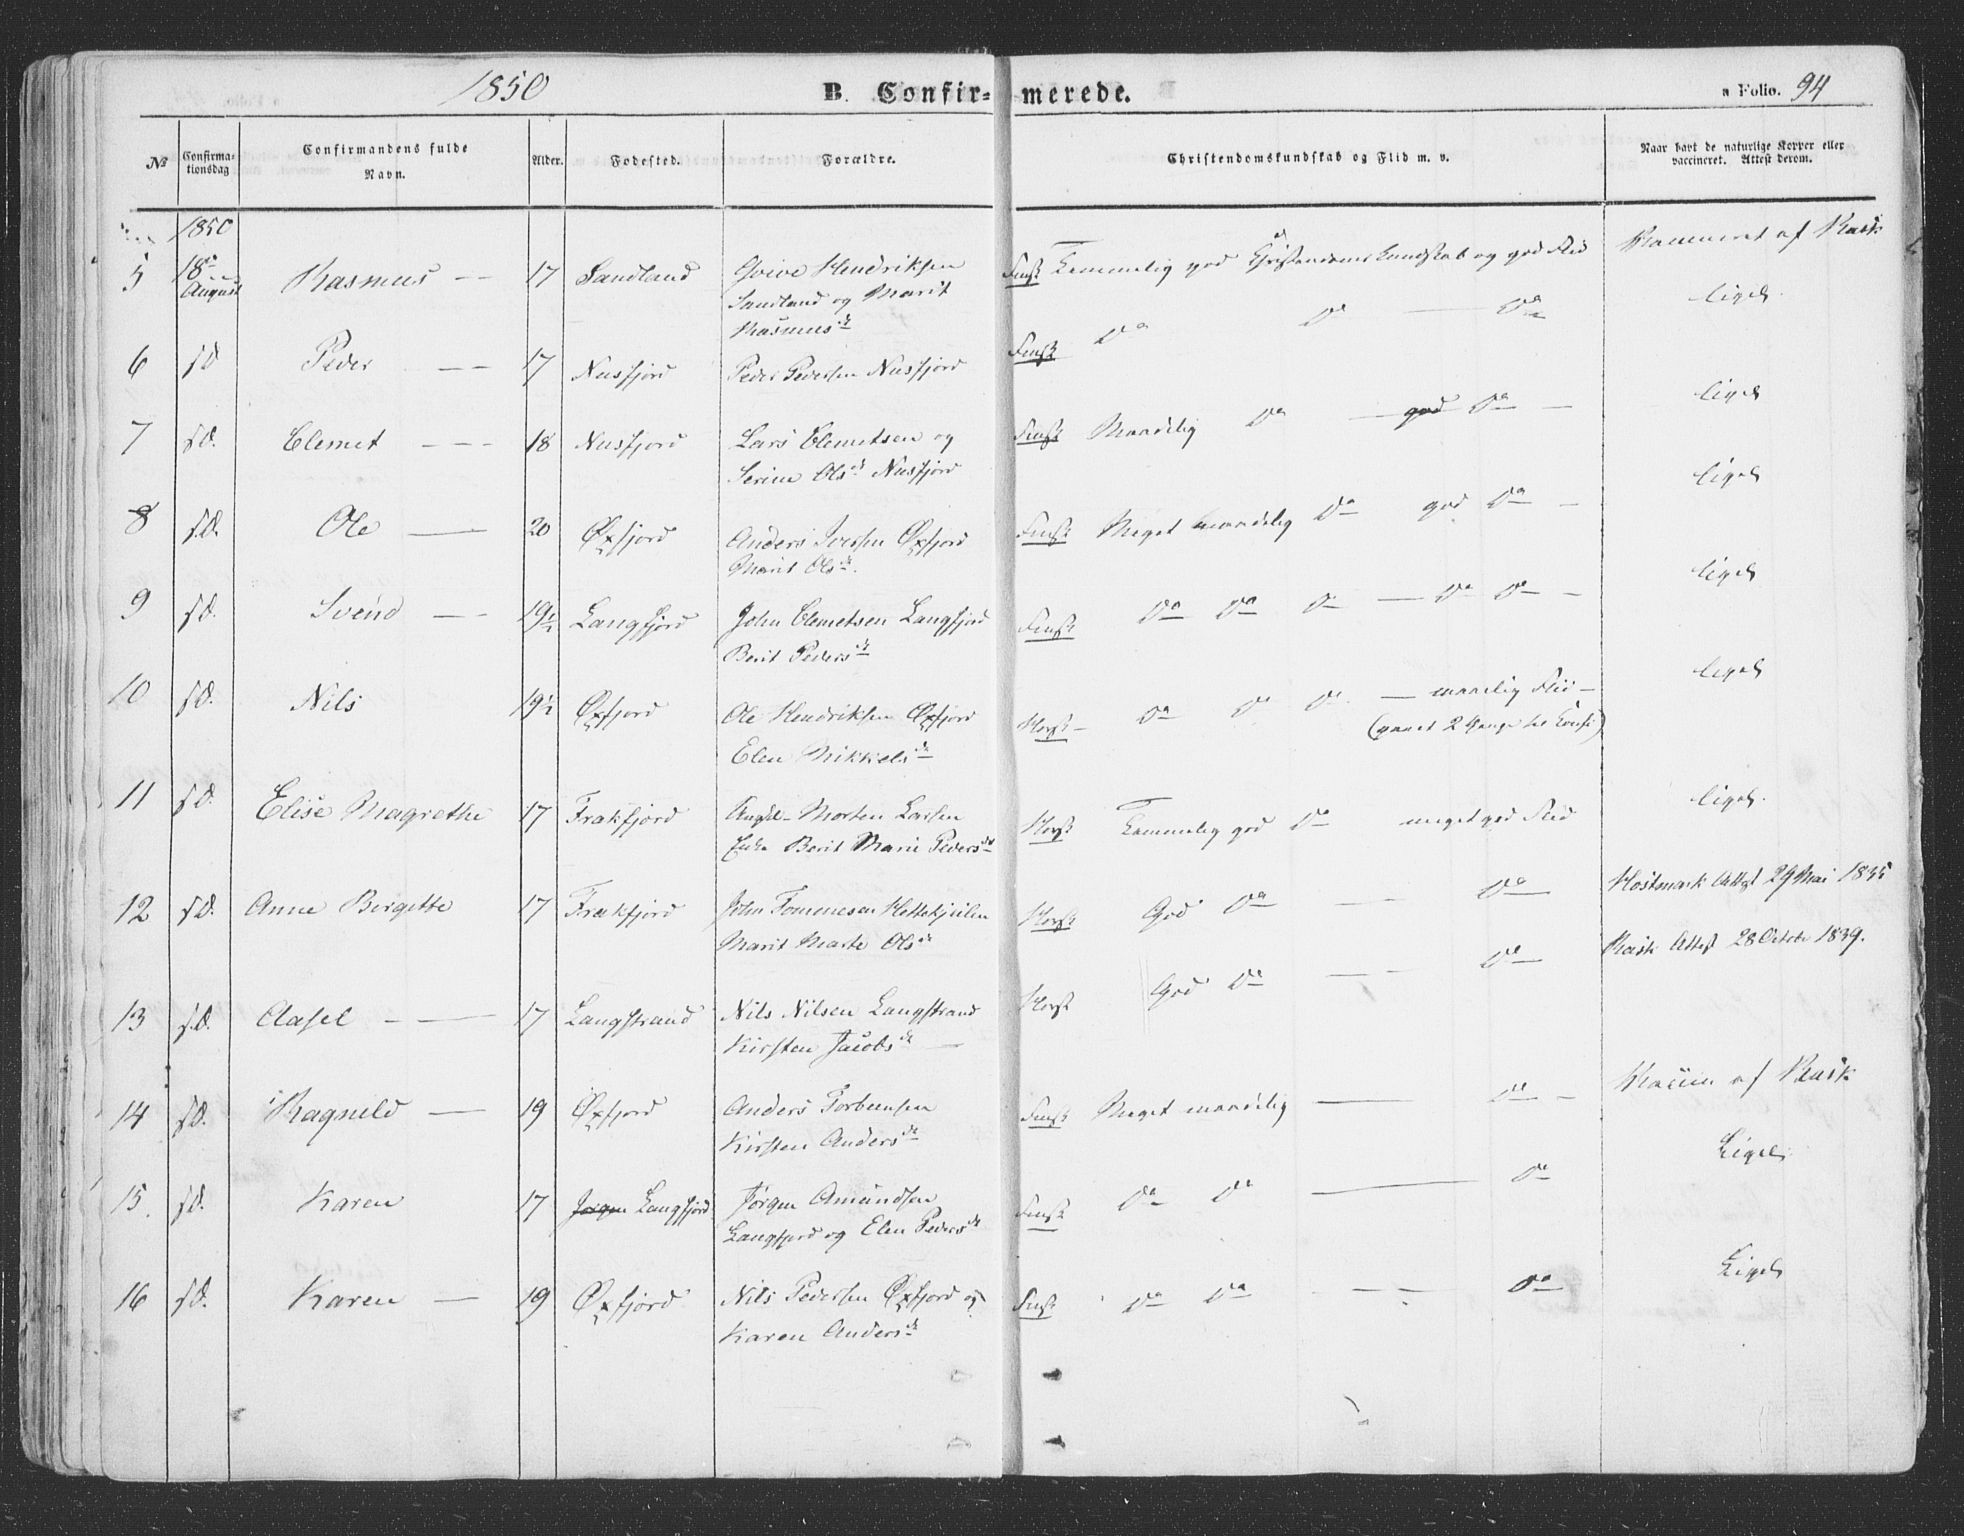 1850 B. Confir- merede. a Folio. 94
№ Confirma-tionsdag Confirmandens fulde Navn. Alder. Fodested. Forældre. Christendomskundskab og Flid m. v. Naar havt de naturlige Kopper eller vaccineret. Attest derom.
1850
5 18de August Rasmus 17 Sandland Hendriksen Finsk Temmelig god Christendomskundskab og god Flid af Rask
Sandland og Marit
Rasmusdt
Ligel.
6 Peder 17 Nusfjord Peder Pedersen Nusfjord Finsk Do Do Do
Ligel
7 Clemet 18 Nusfjord Lars Clemetsen og Finsk Maadelig Do god Do
Serine Olsdt Nusfjord
Ligel
8 Ole 20 Øxfjord Anders Iversen Øxfjord Finsk Meget maadelig Do god Do
Marit Olsdt.
Ligel
9 Svend 19½ Langfjord John Clemetsen Langfjord Finsk Do Do Do Do Do
Berit Pedersdt
Ligel
10 Nils 19½ Øxfjord Ole Hendriksen Øxfjord Norsk Do Do Do maadelig Flid
Elen Mikkelsdt
Ligel.
11 Elise Magrethe 17 Frakfjord Morten Larsen Norsk Temmelig god Do meget god Flid
Enke Berit Marie Pedersdt
12 Anne Birgitte 17 Frakfjord John Tommesen Norsk God Do Do Hostmark Attest 29 Mai 1835
Marit Marte Olsdt
Rask Attest 28 Octobr 1839.
13 Aasel 17 Langstrand Nils Nilsen Langstrand Norsk God Do Do
Kirsten Jacobsdt
14 Ragnild 19 Øxfjord Anders Torbensen Finsk Meget maadelig Do af Rask
Kirsten Andersdt
Ligel
15. Karen 17 Jørgen Langfjord Jørgen Amundsen Finsk Do Do Do
Langfjord og Elen Pedersdt
Ligel
16 Karen 19 Øxfjord Nils Pedersen Øxfjord og Finsk Do Do Do
Karen Andersdt